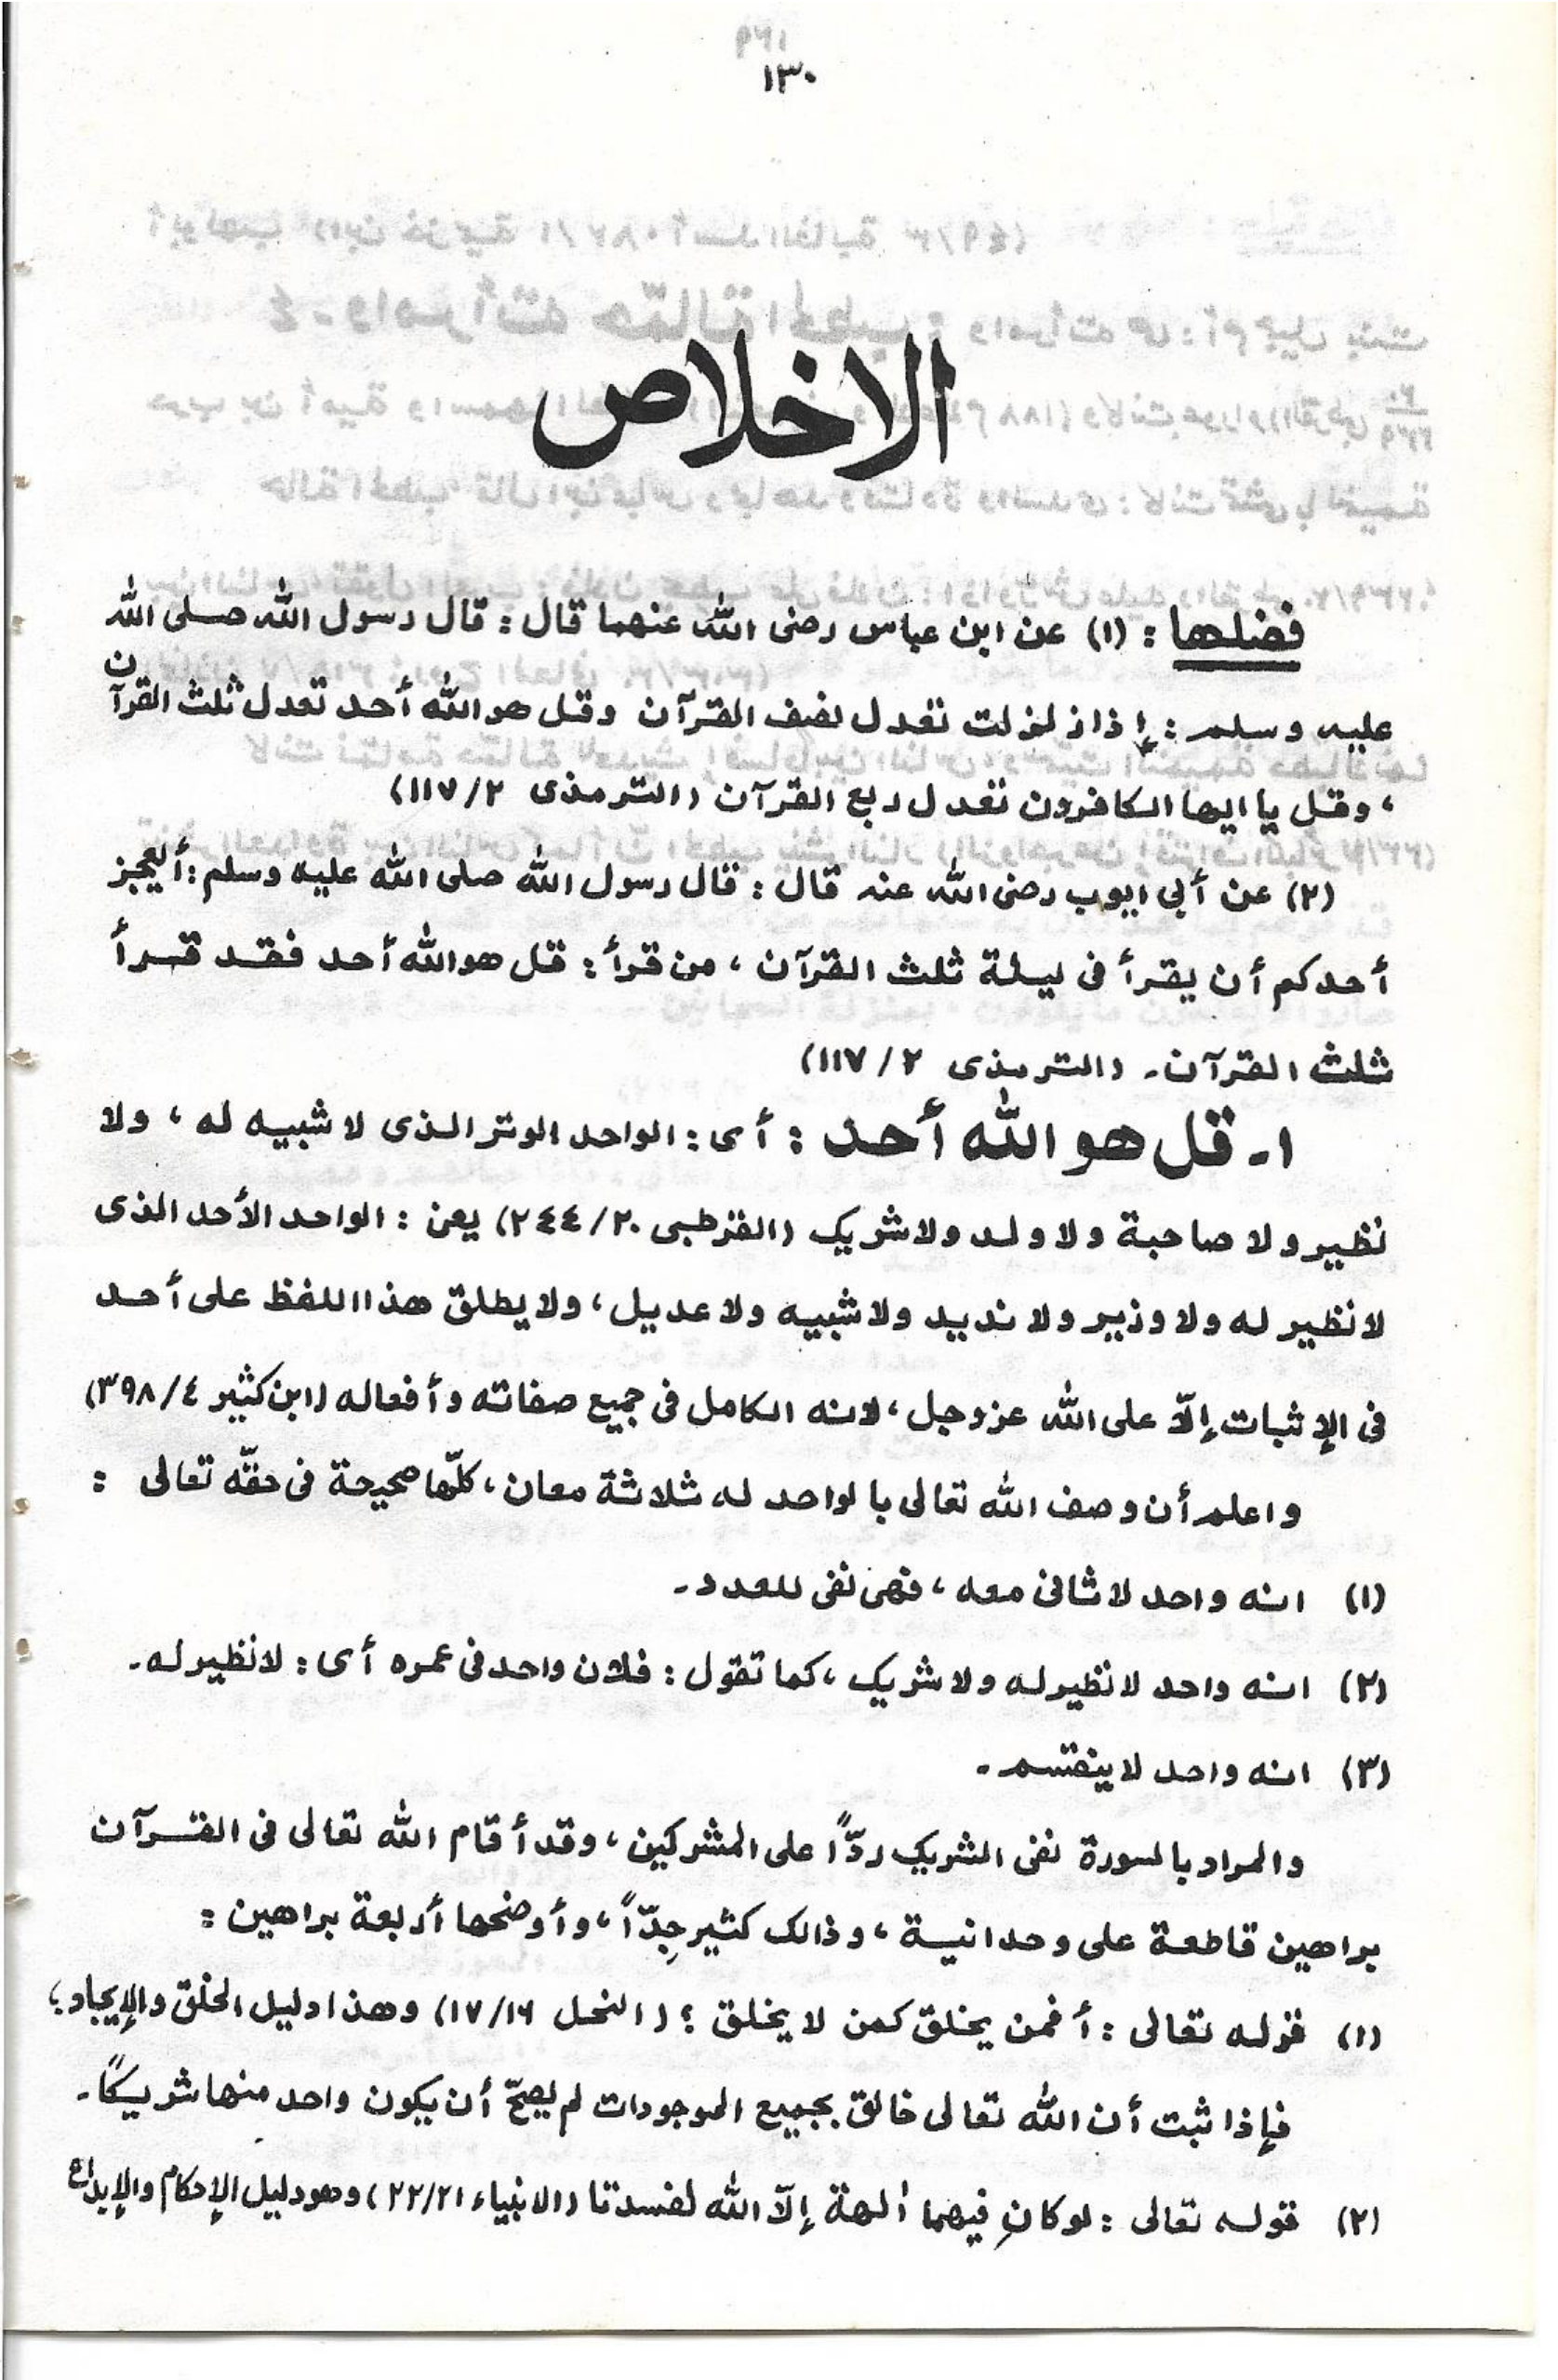 ١٣٠
الاخلاص
فضلها : (١) عن ابن عباس رضى الله عنهما قال : قال رسول الله صلى الله
عليه وسلم : إذا زلزلت تعدل نصف القرآن وقل هو الله أحد تعدل ثلث القرآن
، وقل يا ايها الكافرون تعدل ربع القرآن (الترمذى ٢/١١٧)
(٢) عن أبي ايوب رضى الله عنه قال : قال رسول الله صلى الله عليه وسلم : أيعجز
أحدكم أن يقرأ فى ليلة ثلث القرآن ، من قرأ : قل هو الله أحد فقد قرأ
ثلث القرآن۔ (الترمذى ٢/١١٧)
١۔ قل هو الله أحد : أى : الواحد الوتر الذى لا شبيه له ، ولا
نظير ولا صاحبة ولا ولد ولا شريك (القرطبى ٢٠/٢٤٤) يعن : الواحد الأحد الذى
لا نظير له ولا وزير ولا نديد ولا شبيه ولا عديل ، ولا يطلق هذا اللفظ على أحد
فى الإثبات إلّا على الله عزوجل ، لانه الكامل فى جميع صفاته وأفعاله (ابن كثير ٤/٣٩٨)
واعلم أن وصف الله تعالى بالواحد له ثلاثة معان ، كلّها صحيحة فى حقّه تعالى :
(١) انه واحد لا ثانى معه ، فهى نفى للعدد۔
(٢) انه واحد لا نظير له ولا شريك ، كما تقول : فلان واحد فى عمره أى : لا نظير له۔
(٣) انه واحد لا ينقسم۔
والمراد بالسورة نفى الشريك ردًّا على المشركين ، وقد أقام الله تعالى فى القرآن
براهين قاطعة على وحدانية ، وذالك كثير جِدّاً ، وأوضحها أربعة براهين :
(١) قوله تعالى : أفمن يخلق كمن لا يخلق ؟ (النحل ١٦/١٧) وهذا دليل الخلق والإيجاد ؛
فإذا ثبت أن الله تعالى خالق بجميع الموجودات لم يصحّ أن يكون واحد منها شريكاً۔
(٢) قوله تعالى : لو كانِ فيهما اٰلهة إلّا الله لفسدتا (الانبياء ٢١/٢٢) وهو دليل الإحكام والإبداع